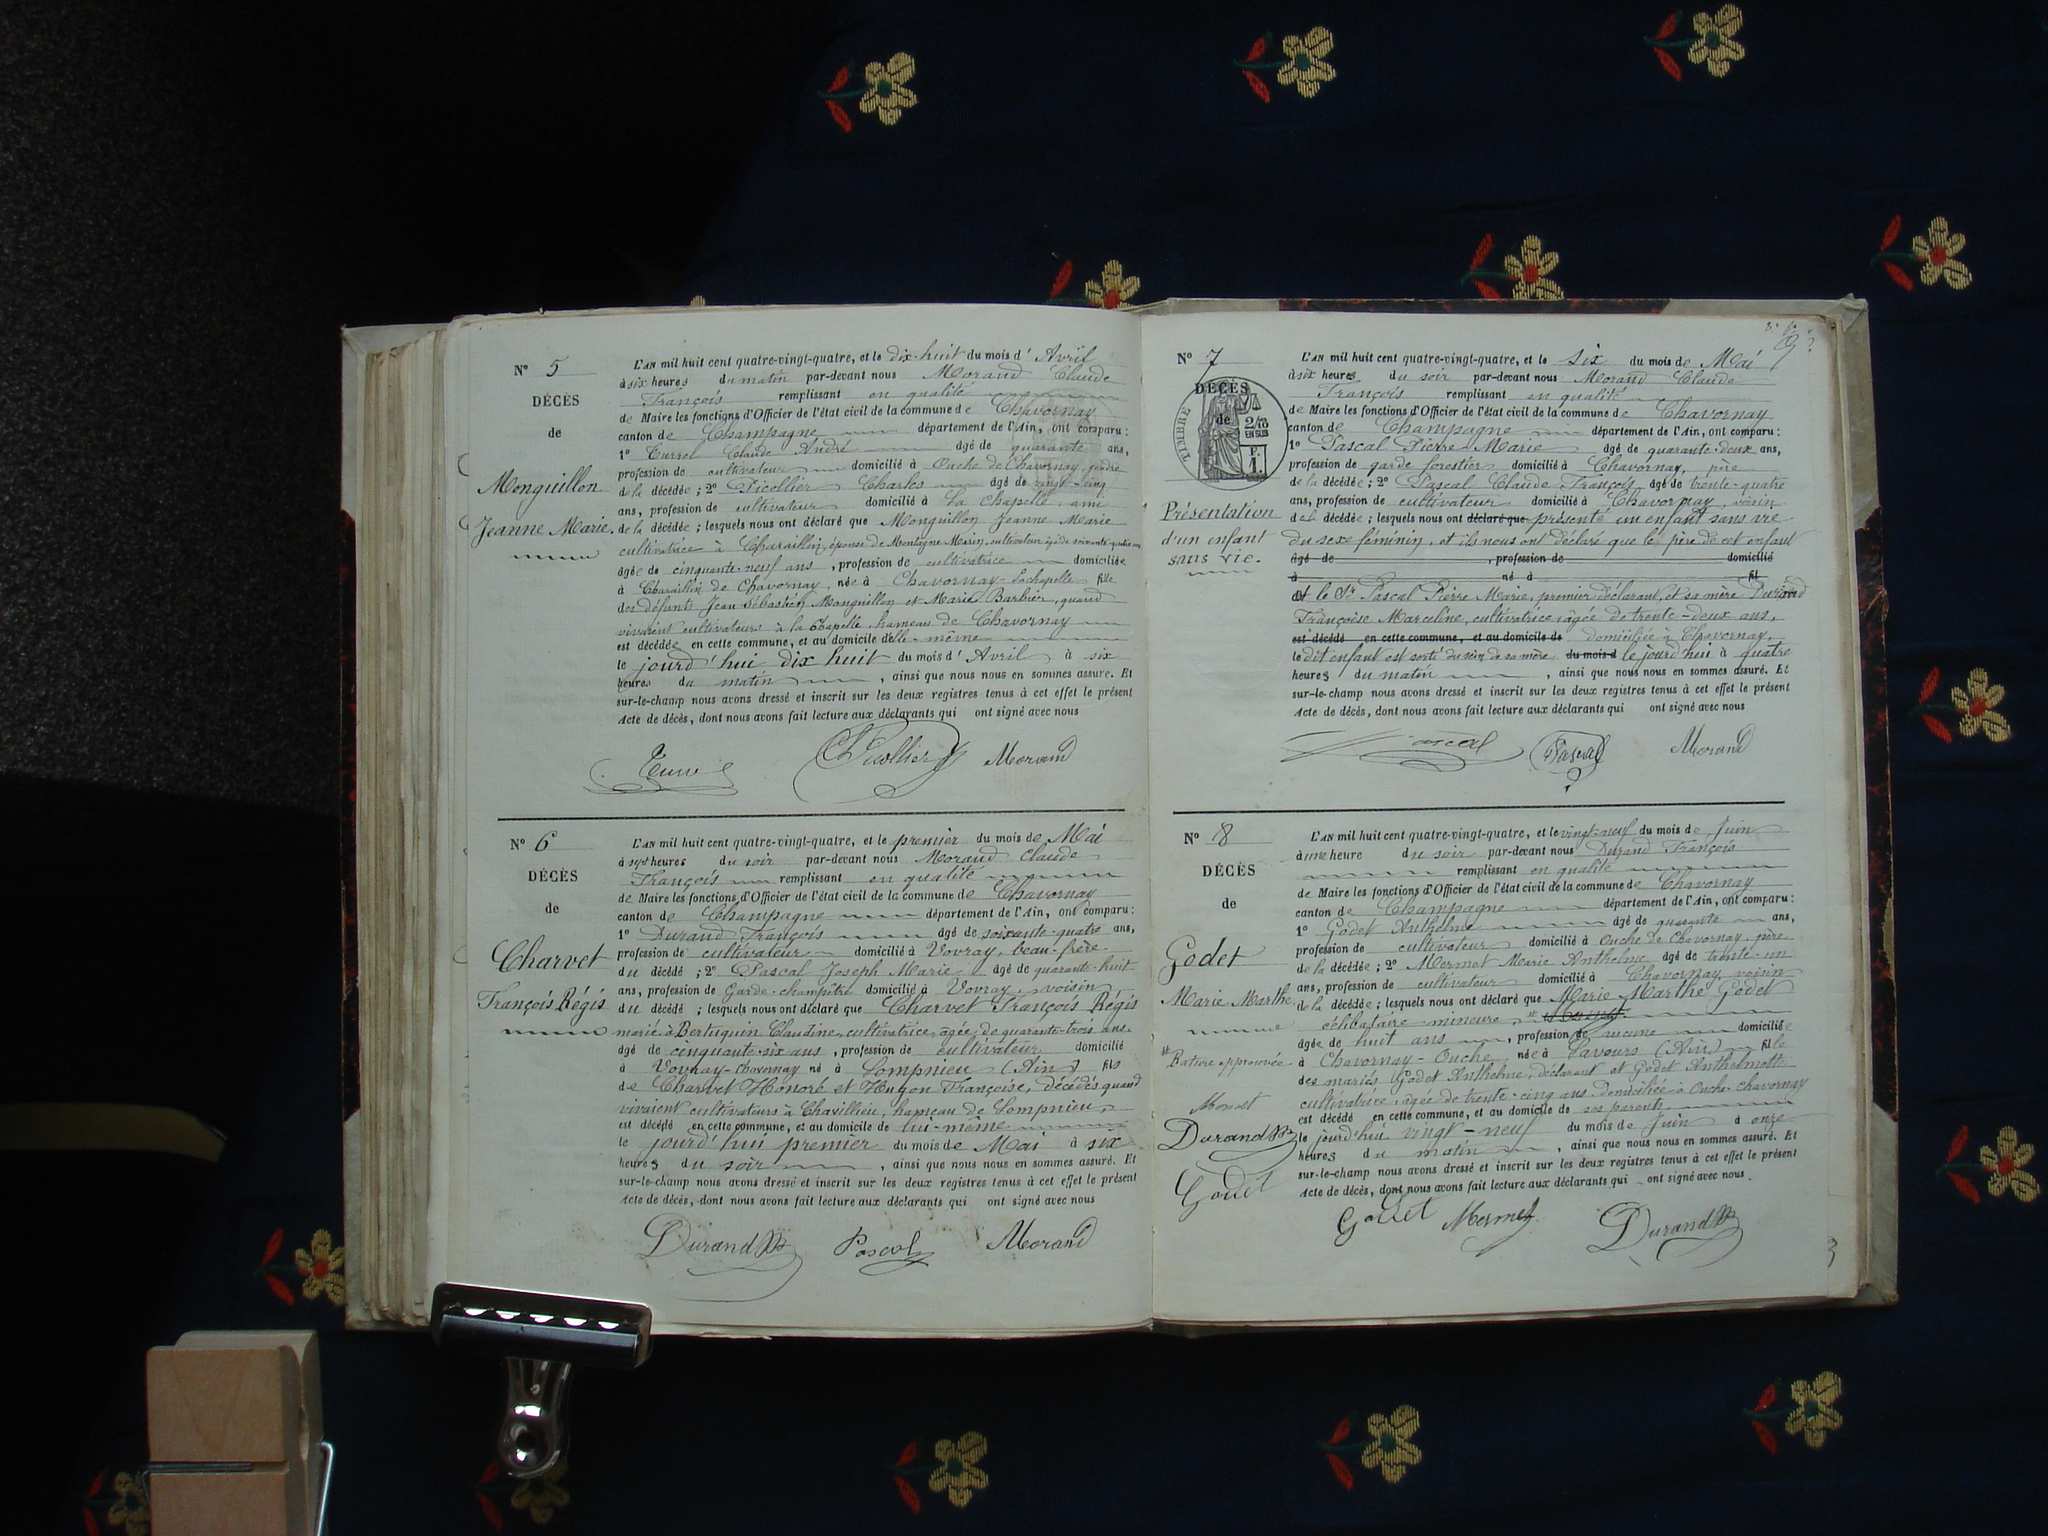 N° 5
DÉCÈS
de
Monguillon
Jeanne Marie.
L'AN mil huit cent quatre-vingt-quatre, et le dix-huit du mois d'Avril
à six heures du matin par-devant nous Morand Claude
François remplissant en qualité
de Maire les fonctions d'Officier de l'état civil de la commune de Chavornay
canton de Champagne département de l'Ain, ont comparu:
1° Claude André âgé de quarante ans,
profession de cultivateur domicilié à Ouche de Chavornay, gendre
de la décédée; 2° Picollier Charles âgé de vingt-cinq
ans, profession de cultivateur domicilié à la Chapelle, ami
de la décédée; lesquels nous ont déclaré que Monguillon Jeanne Marie
cultivatrice à Charaillin, épouse de Montagne Marin, cultivateur âgé de soixante-quatre ans
âgée de cinquante-neuf ans, profession de cultivatrice domiciliée
à Charaillin de Chavornay, née à Chavornay-Lachapelle fille
des défunts Jean Sébastien Monguillon et Marie Barbier, quand
vivaient cultivateurs à la Chapelle, hameau de Chavornay
est décédée en cette commune, et au domicile d'elle-même
le jourd'hui dix huit du mois d'Avril à six
heures du matin, ainsi que nous nous en sommes assuré. Et
sur-le-champ nous avons dressé et inscrit sur les deux registres tenus à cet effet le présent
acte de décès, dont nous avons fait lecture aux déclarants qui ont signé avec nous
Picollier Morand
N° 6
DÉCÈS
de
Charvet
François Régis
L'AN mil huit cent quatre-vingt-quatre, et le premier du mois de Mai
à sept heures du soir par-devant nous Morand Claude
François remplissant en qualité
de Maire les fonctions d'Officier de l'état civil de la commune de Chavornay
canton de Champagne département de l'Ain, ont comparu:
1° Durand François âgé de soixante-quatre ans,
profession de cultivateur domicilié à Vovray, beau-frère
du décédé; 2° Pascal Joseph Marie âgé de quarante-huit
ans, profession de Garde-champêtre domicilié à Vovray, voisin
du décédé; lesquels nous ont déclaré que Charvet François Régis
marié à Bertuquin Claudine, cultivatrice, agée de quarante-trois ans
âgé de cinquante-six ans, profession de cultivateur domicilié
à Vovray-Chavornay né à Lompnieu (Ain) fils
de Charvet Honoré et Hugon Françoise, décédés quand
vivaient cultivateurs à Chavillieu, hameau de Lompnieu,
est décédé en cette commune, et au domicile de lui-même
le jourd'hui premier du mois de Mai à six
heures du soir, ainsi que nous nous en sommes assuré. Et
sur-le-champ nous avons dressé et inscrit sur les deux registres tenus à cet effet le présent
acte de décès, dont nous avons fait lecture aux déclarants qui ont signé avec nous
Durand Pascal Morand
N° 7
DÉCÈS
de
TIMBRE
2/10
EN SUS
Présentation
d'un enfant
sans vie.
L'AN mil huit cent quatre-vingt-quatre, et le six du mois de Mai
à six heures du soir par-devant nous Morand Claude
François remplissant en qualité
de Maire les fonctions d'Officier de l'état civil de la commune de Chavornay
canton de Champagne département de l'Ain, ont comparu:
1° Pascal Pierre Marie âgé de quarante-deux ans,
profession de garde forestier domicilié à Chavornay, père
de la décédée; 2° Pascal Claude François âgé de trente-quatre
ans, profession de cultivateur domicilié à Chavornay, voisin
de la décédée; lesquels nous ont déclaré que présenté un enfant sans vie
du sexe féminin, et ils nous ont déclaré que le père de cet enfant
âgé de , profession de domicilié
à né à fil
est le Sr Pascal Pierre Marie, premier déclarant, et sa mère Durand
Françoise Marceline, cultivatrice âgée de trente-deux ans,
est décédé en cette commune, et au domicile de domiciliée à Chavornay,
le dit enfant est sorti du sein de sa mère du mois d le jourd'hui à quatre
heures du matin, ainsi que nous nous en sommes assuré. Et
sur-le-champ nous avons dressé et inscrit sur les deux registres tenus à cet effet le présent
acte de décès, dont nous avons fait lecture aux déclarants qui ont signé avec nous
Pascal Pascal Morand
N° 8
DÉCÈS
de
Godet
Marie Marthe
Rature approuvée
Mermet
Durand
Godet
L'AN mil huit cent quatre-vingt-quatre, et le vingt-neuf du mois de Juin
à une heure du soir par-devant nous Durand François
remplissant en qualité
de Maire les fonctions d'Officier de l'état civil de la commune de Chavornay
canton de Champagne département de l'Ain, ont comparu:
1° Godet Anthelme âgé de quarante ans,
profession de cultivateur domicilié à Ouche de Chavornay, père
de la décédée; 2° Mermet Marie Anthelme âgé de trente-un
ans, profession de cultivateur domicilié à Chavornay, voisin
de la décédée; lesquels nous ont déclaré que Marie Marthe Godet
célibataire mineure
âgée de huit ans, profession de aucune domiciliée
à Chavornay-Ouche née à Lavours (Ain) fille
des mariés Godet Anthelme, déclarant et Godet Anthelmette
cultivatrice, agée de trente-cinq ans, domiciliée à Ouche-Chavornay
est décédé en cette commune, et au domicile de ses parents
le jourd'hui vingt-neuf du mois de Juin à onze
heures du matin, ainsi que nous nous en sommes assuré. Et
sur-le-champ nous avons dressé et inscrit sur les deux registres tenus à cet effet le présent
acte de décès, dont nous avons fait lecture aux déclarants qui ont signé avec nous.
Godet Mermet Durand